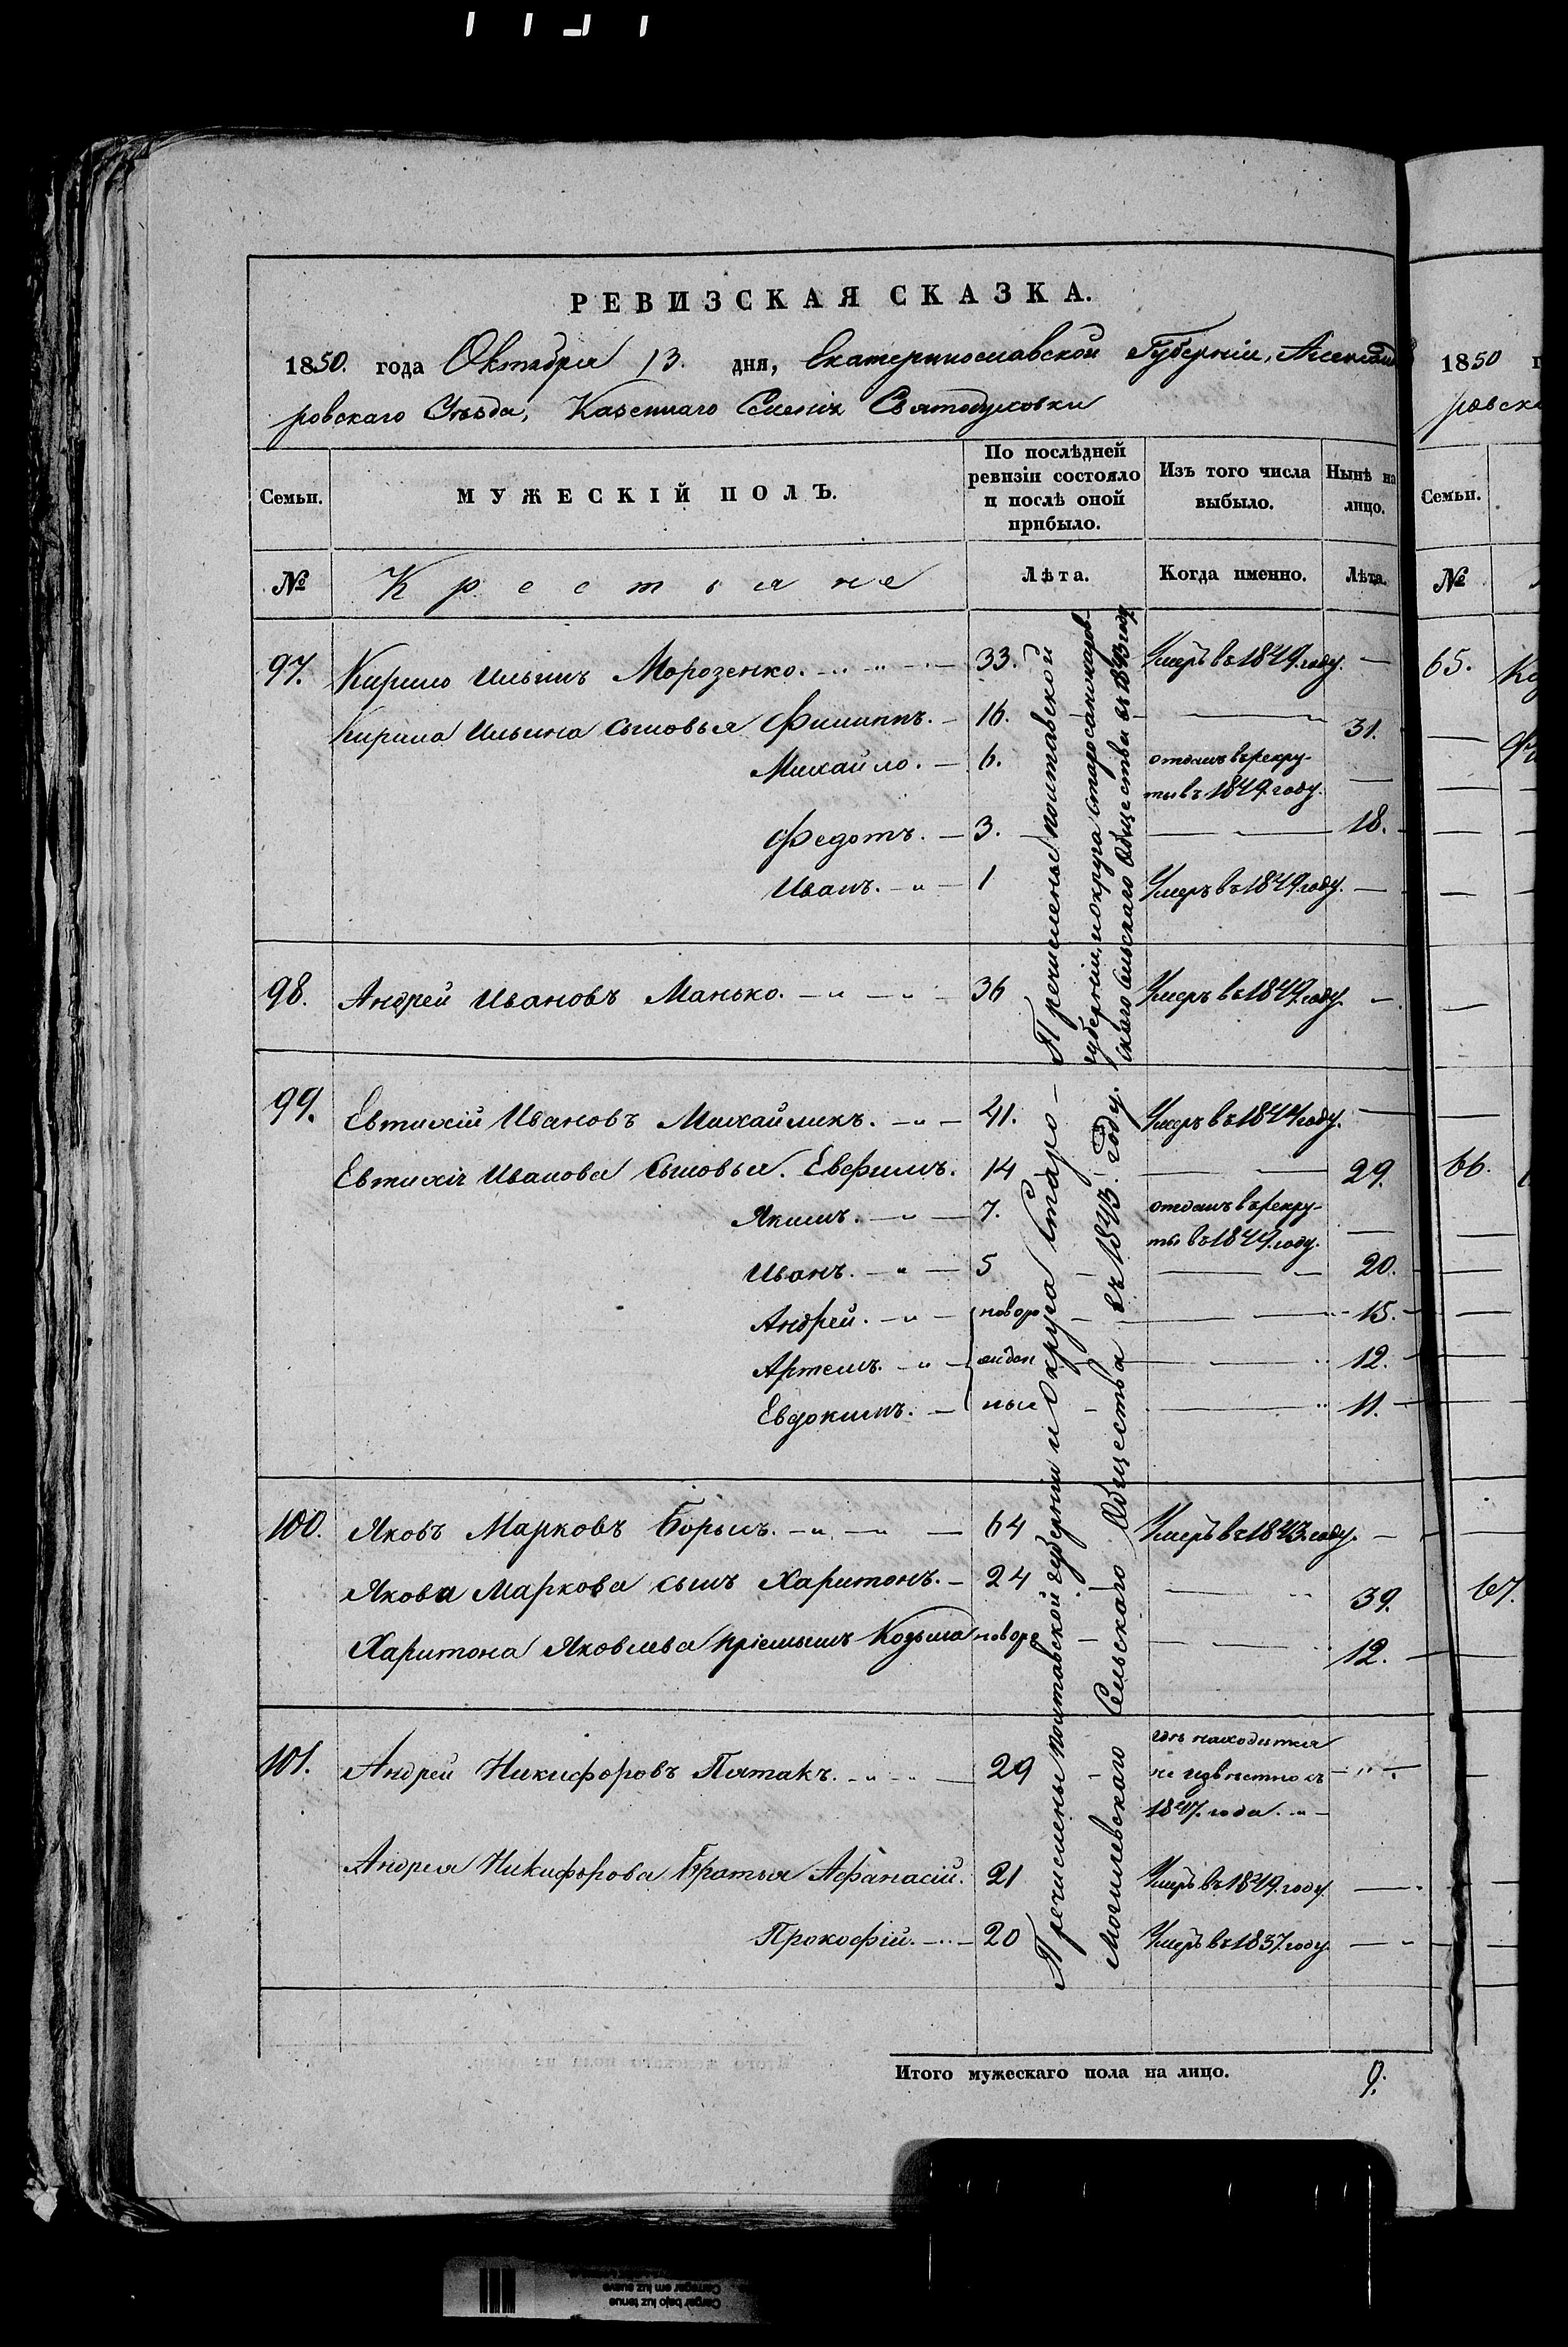 РЕВИЗСКАЯ СКАЗКА.
1850. года Октября 13. дня, Екатеринославской Губерніи, Александ
ровскаго Уѣзда, Казеннаго Селенія Святодуховки
Семьи.
МУЖЕСКІЙ ПОЛЪ.
По послѣдней
ревизіи состояло
и послѣ оной
прибыло.
Изъ того числа
выбыло.
Нынѣ на
лицо.
№ Крестьяне Лѣта. Когда именно. Лѣта.
97. Кирило Ильинъ Морозенко. 33. Умеръ въ 1849. году.
Кирила Ильина сыновья Филиппъ. 16. 31.
Михайло. 6. отданъ въ рекру-
ты въ 1849. году.
Федотъ. 3. 18.
Иванъ. 1 Умеръ въ 1849. году.
Пречислены полтавской
губерніи, и округа старосанжаров-
скаго Сельскаго Общества въ 1843 году
98. Андрей Ивановъ Манько. 36 Умеръ въ 1849. году.
99. Евтихій Ивановъ Михайликъ. 41. Умеръ въ 1844 году.
Евтихія Иванова сыновья. Евфимъ. 14 29.
Якимъ. 7. отданъ въ рекру-
ты въ 1844. году.
Иванъ. 5 20.
Андрей. новоро 15.
Артемъ. жден 12.
Евдокимъ. ные 11.
100. Яковъ Марковъ 64 Умеръ въ 1843. году.
Якова Маркова сынъ Харитонъ. 24 39.
Харитона Яковлева пріемышъ Козьма новоро 12.
101. Андрей Никифоровъ Пятакъ. 29 гдѣ находится
не извѣстно съ
1847. года.
Андрея Никифорова Братья Афанасій. 21 Умеръ въ 1849. году.
Прокофій. 20 Умеръ въ 1837. году.
Пречислены полтавской губерніи и Округа Старо-
Могилевскаго Сельскаго Общества въ 1843. году.
Итого мужескаго пола на лицо. 9.
1850
ровска
Семьи.
№
65.
66.
67.